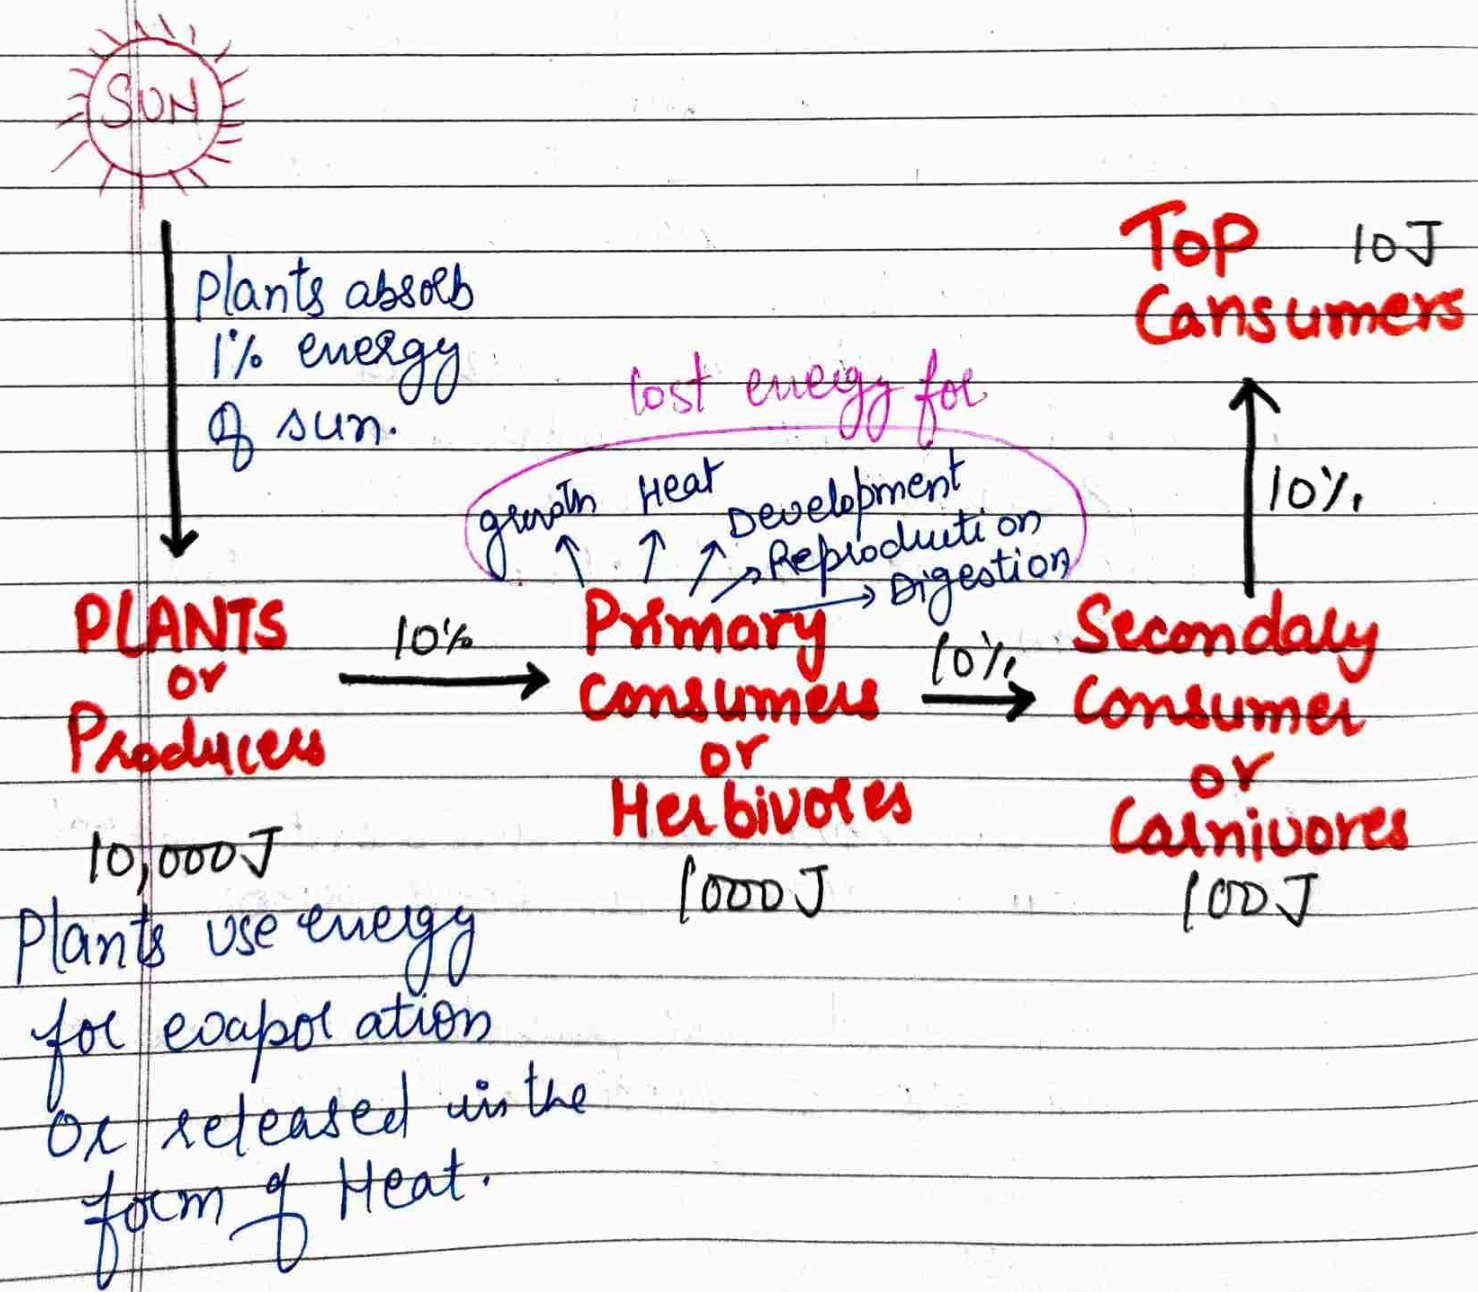 SUN
Plants absorb
1% energy
of sun.
TOP 10J
Cansumers
lost energy for
growth Heat Development
Reproduction
Digestion
10%
PLANTS
or
Producers
10%
Primary
Consumers
or
Herbivores
10%
Secondary
Consumer
or
Carnivores
10,000J
1000J
100J
Plants use energy
for evaporation
or released in the
form of Heat.